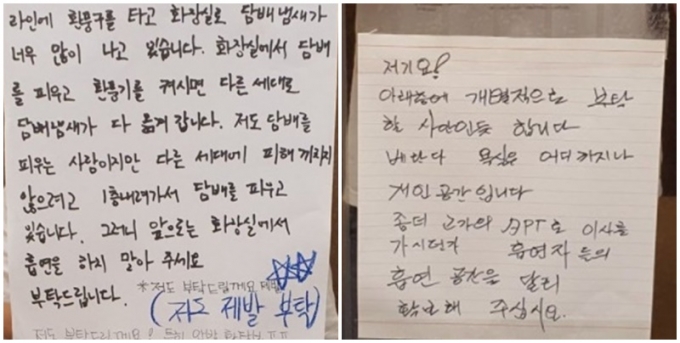 라인에 환풍구를 타고 화장실로 담배냄새가
너무 많이 나고 있습니다. 화장실에서 담배
를 피우고 환풍기를 켜시면 다른 세대로
담배냄새가 다 옮겨 갑니다. 저도 담배를
피우는 사람이지만 다른 세대에 피해 끼치지
않으려고 1층내려가서 담배를 피우고
있습니다. 그러니 앞으로는 화장실에서
흡연을 하지 말아 주세요
부탁드립니다.
*저도 부탁드릴께요 제발
(저도 제발 부탁)
저도 부탁드릴께요!
저기요!
아래층에 개별적으로 부탁
할 사안인듯 합니다
베란다 욕실은 어디까지나
개인공간입니다
좀더 고가의 APT로 이사를
가시던가 흡연자들의
흡연 공간을 달리
확보해 주십시요.